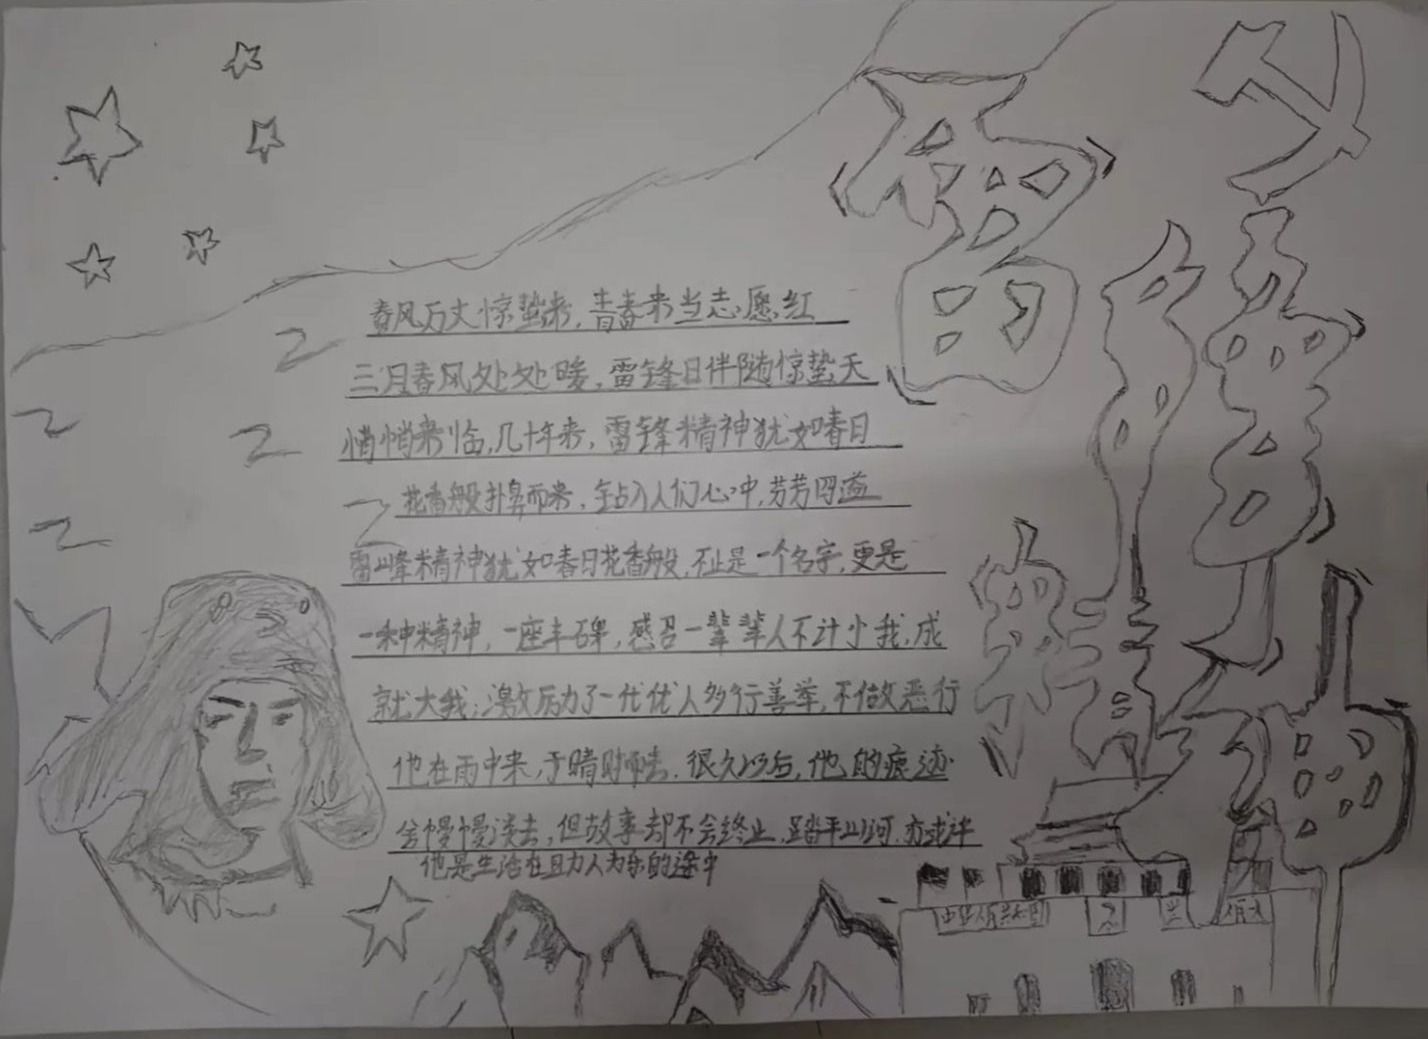 春风万丈惊蛰来,青春来当志愿红
三月春风处处暖,雷锋日伴随惊蛰天
悄悄来临,几十年来,雷锋精神犹如春日
花香般扑鼻而来,钻入人们心中,芳芳四溢
雷峰精神犹如春日花香般,不止是一个名字,更是
一种精神,一座丰碑,感召一辈辈人不计小我,成
就大我;激厉力了一代代人多行善举,不做恶行
他在雨中来,于晴时去,很久以后,他的痕迹
会慢慢淡去,但故事却不会终止,踏平山河,亦或许
他是生活在助人为乐的途中
中华人民共和国